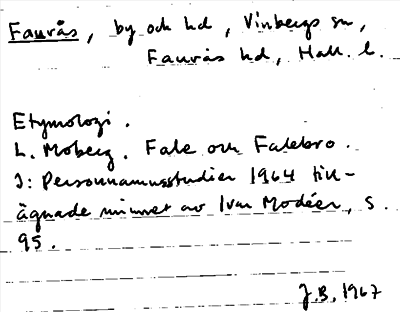 Faurås, by och hd, Vinbergs sn,
Faurås hd, Hall. l.
Etymologi.
L. Moberg. Fale och Falebro.
I: Personnamnsstudier 1964 till-
ägnade minnet av Ivar Modéer, s.
95.
J.B. 1967